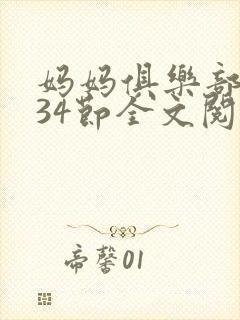 妈妈俱乐部
34节全文阅
帝馨01